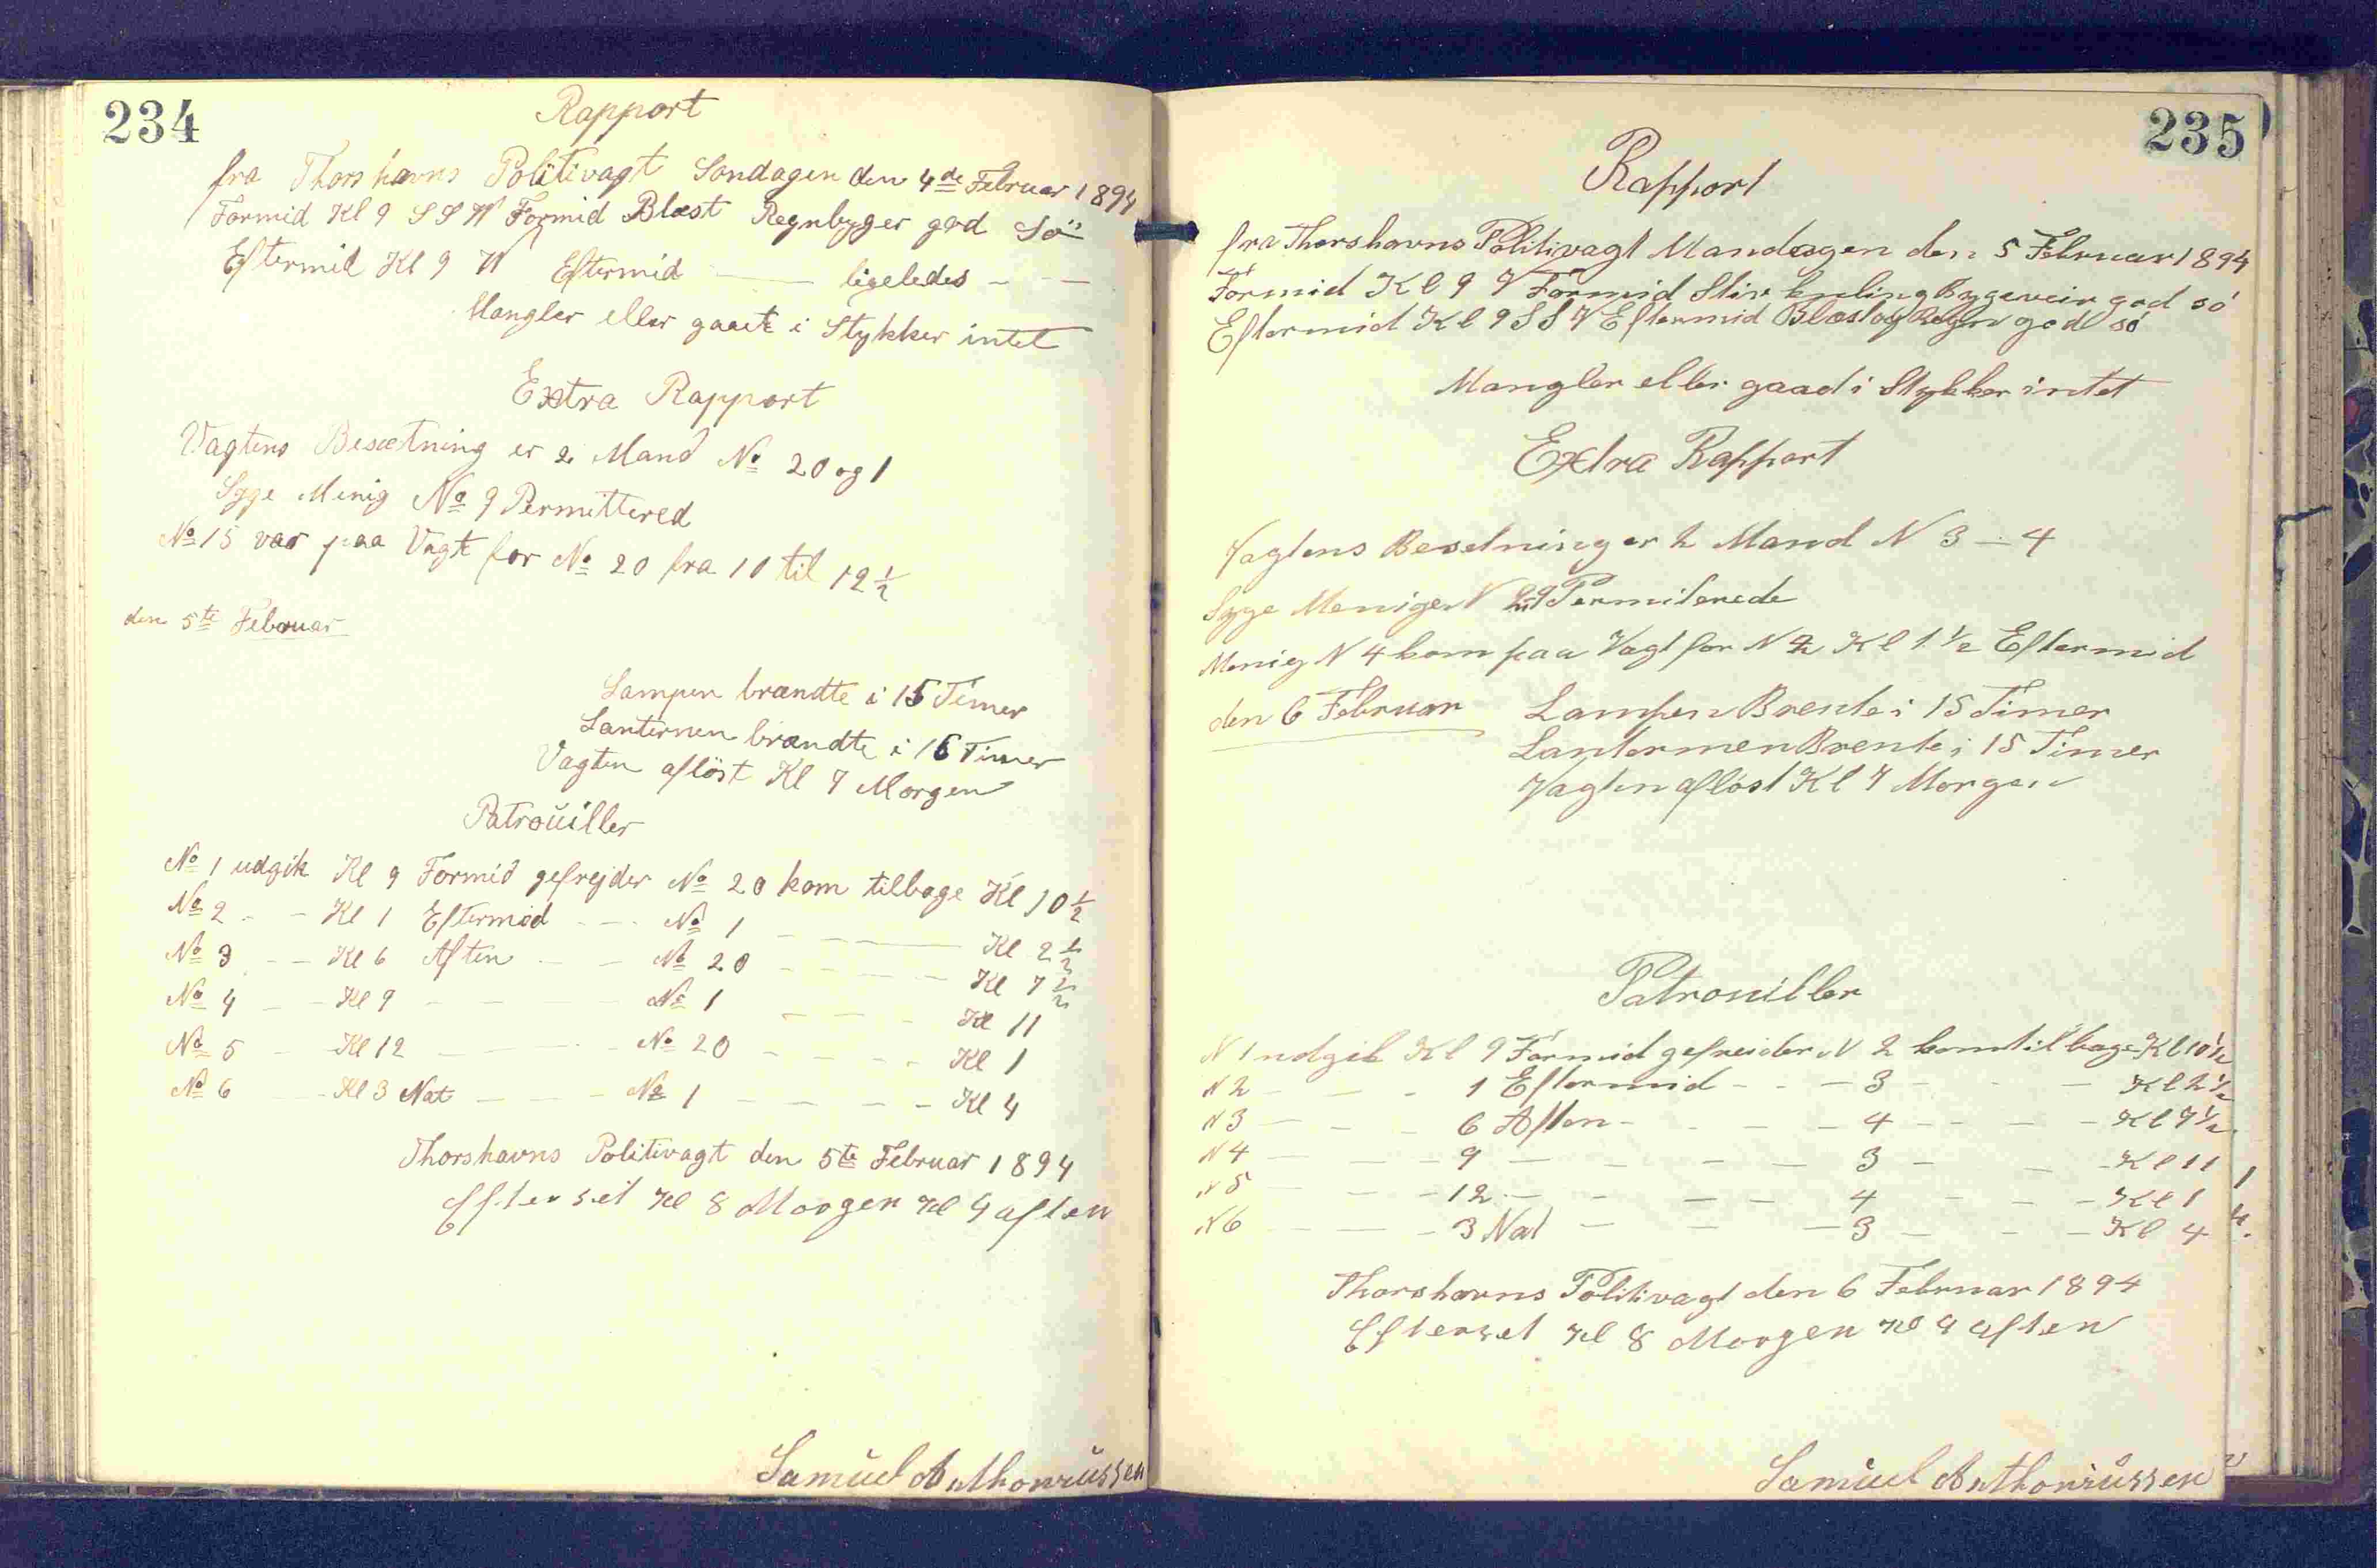 234
Rapport
fra Thorshavns Politivagt Söndagen den 4de Februar 1894
Formid Kl 9 S S W Formid Blæst Regnbyger god Sö
Eftermid Kl 9 W Eftermid — ligeledes — —
Mangler eller gaaet i Stykker intet
Extra Rapport
Vagtens Besætning er 2 Mand No 20 og 1
Syge Menig No 9 Permittered
No 15 var paa Vagt for No 20 fra 10 til 12 1/2
den 5te Februar
Lampen brændte i 15 Timer
Lanternen brændte i 16 Timer
Vagten aflöst Kl 7 Morgen
Patrouiller
No 1 udgik Kl 9 Formid gefrejder No 20 kom tilbage Kl 10 1/2
No 2 - - Kl 1 Eftermid - - - No 1 - - — Kl 2 1/2
No 3 - - Kl 6 Aften - - No 20 - - - - - Kl 7 1/2
No 4 - - Kl 9 - - - No 1 - - - Kl 11
No 5 - - Kl 12 — - - No 20 - - - - Kl 1
No 6 - - Kl 3 Nat - - - No 1 - - - - Kl 4
Thorshavns Politivagt den 5te Februar 1894
Efterset Kl 8 Morgen Kl 9 aften
Samuel Anthoniussen
235
Rapport
fra Thorshavns Politivagt Mandagen den 5 Februar 1894
Formid Kl 9 V Formid Stiv kuling Bygeveir god só
Eftermid Kl 9 S S V Eftermid Blæst og Regn god só
Mangler eller gaad i Stykker intet
Extra Rapport
Vagtens Besetning er 2 Mand N 3 - 4
Syge Meniger N 9 Permiterede
Menig N 4 kom paa Vagt for N 2 Kl 1 1/2 Eftermid
den 6 Februar
Lampen Brente i 15 Timer
Lanternen Brente i 15 Timer
Vagten aflöst Kl 7 Morgen
Patrouiller
N 1 udgik Kl 9 Formid gefreider N 2 kom tilbage Kl 10 1/2
N 2 - - - 1 Eftermid - - - 3 - - - Kl 2 1/2
N 3 - - - 6 Aften - - - - 4 - - - - Kl 7 1/2
N 4 - - - 9 - - - - 3 - - - Kl 11
N 5 - - - 12 - - - - 4 - - - Kl 1
N 6 - - - 3 Nat - - - 3 - - - Kl 4
Thorshavns Politivagt den 6 Februar 1894
Efterset Kl 8 Morgen Kl 9 aften
Samuel Anthoniussen